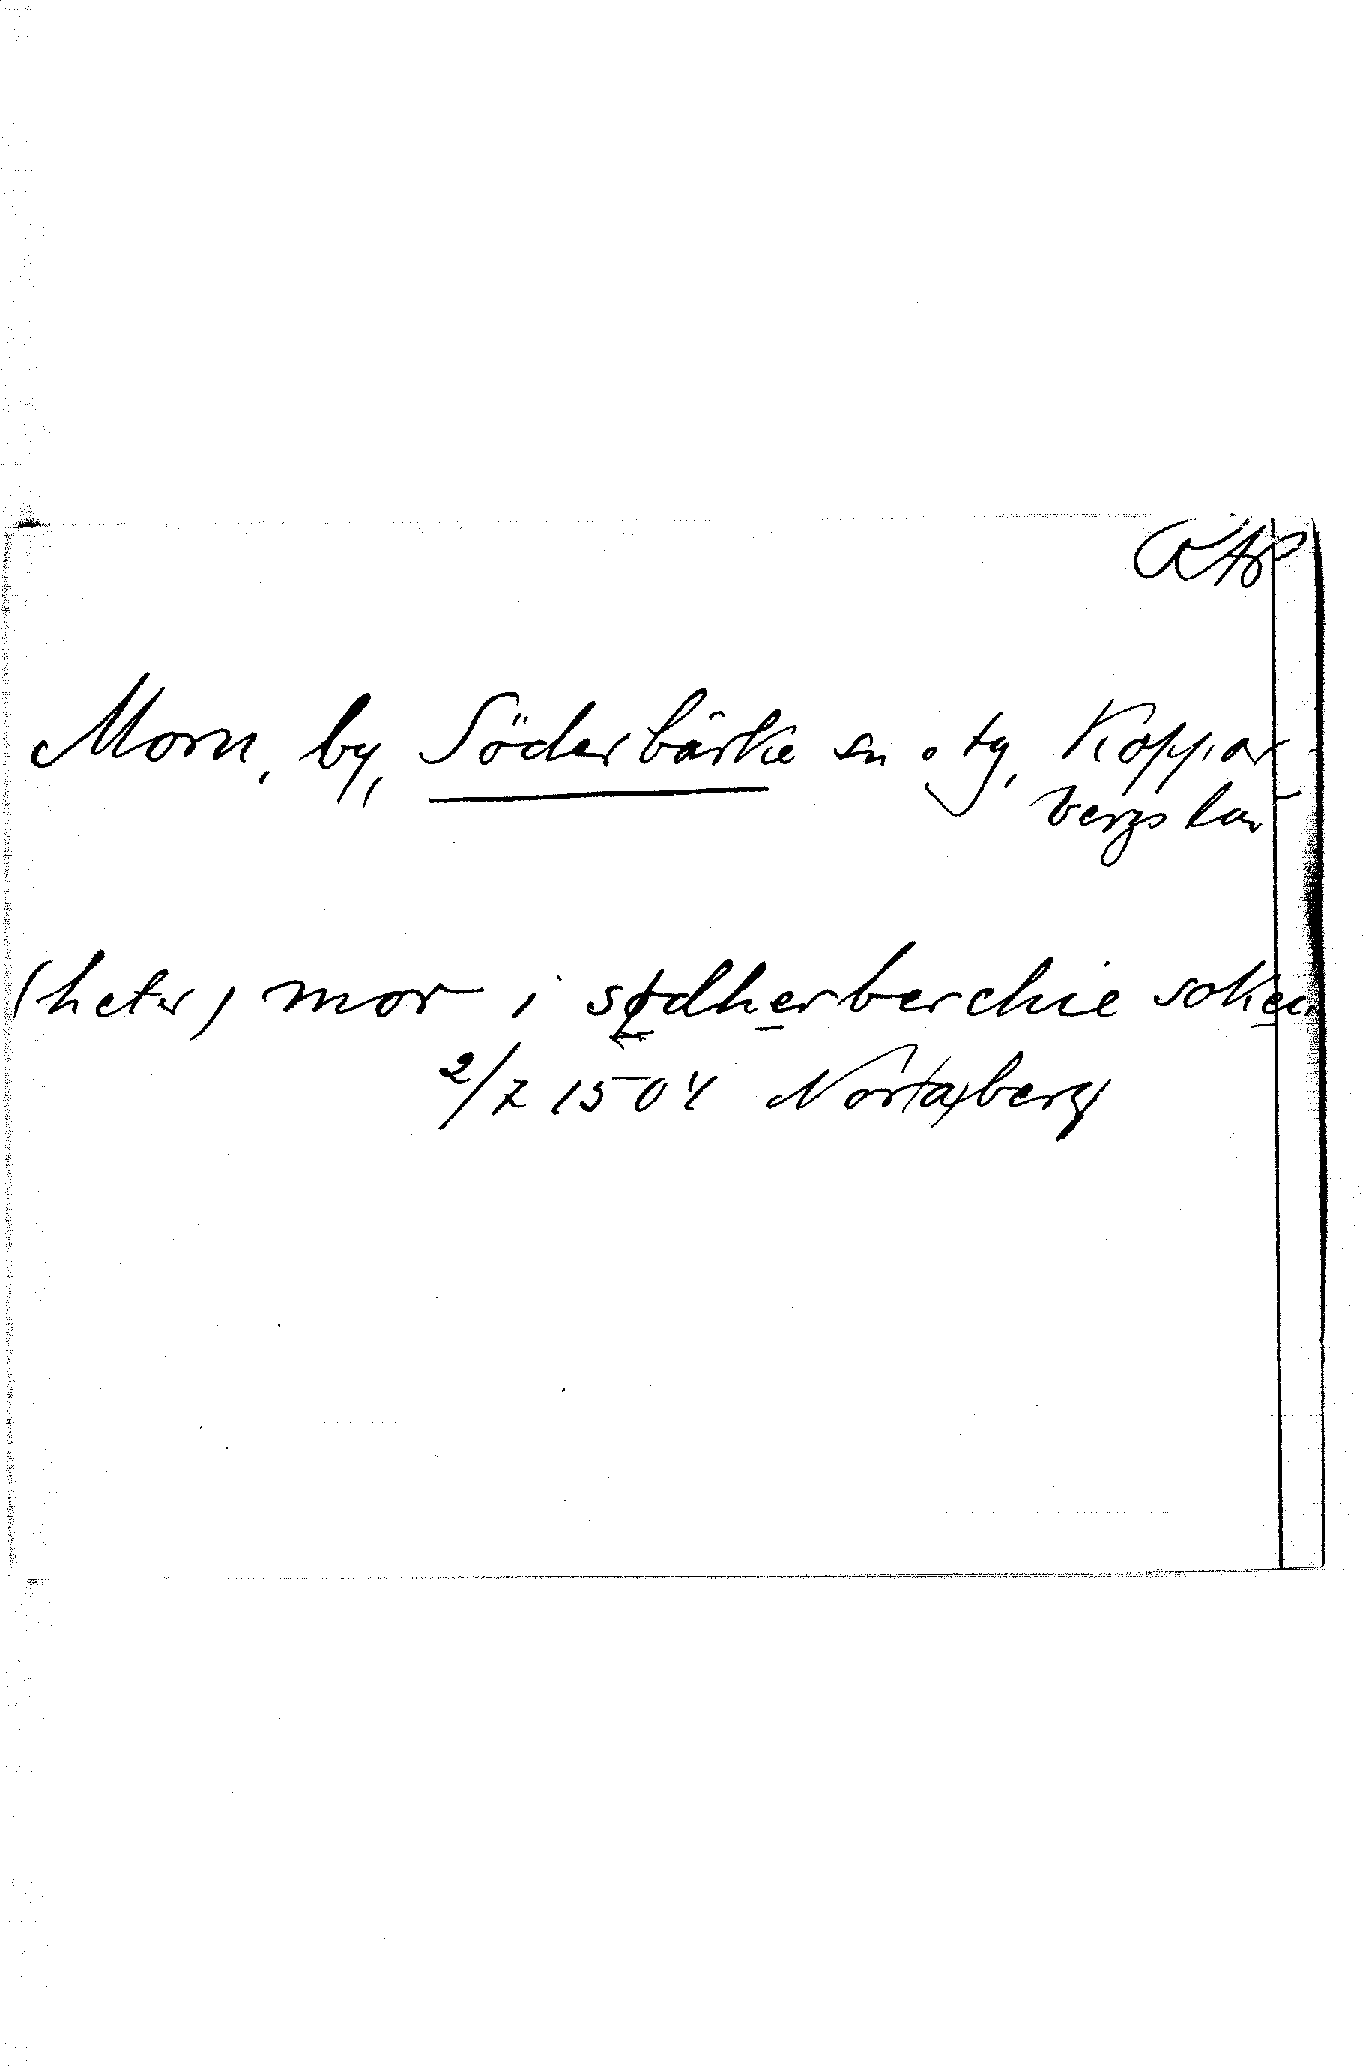 RAP
Morn, by, Söderbärke sn o tg, Koppar-
bergs län
(heter) mor i sødherberchie soken
2/7 1504 Norraberg